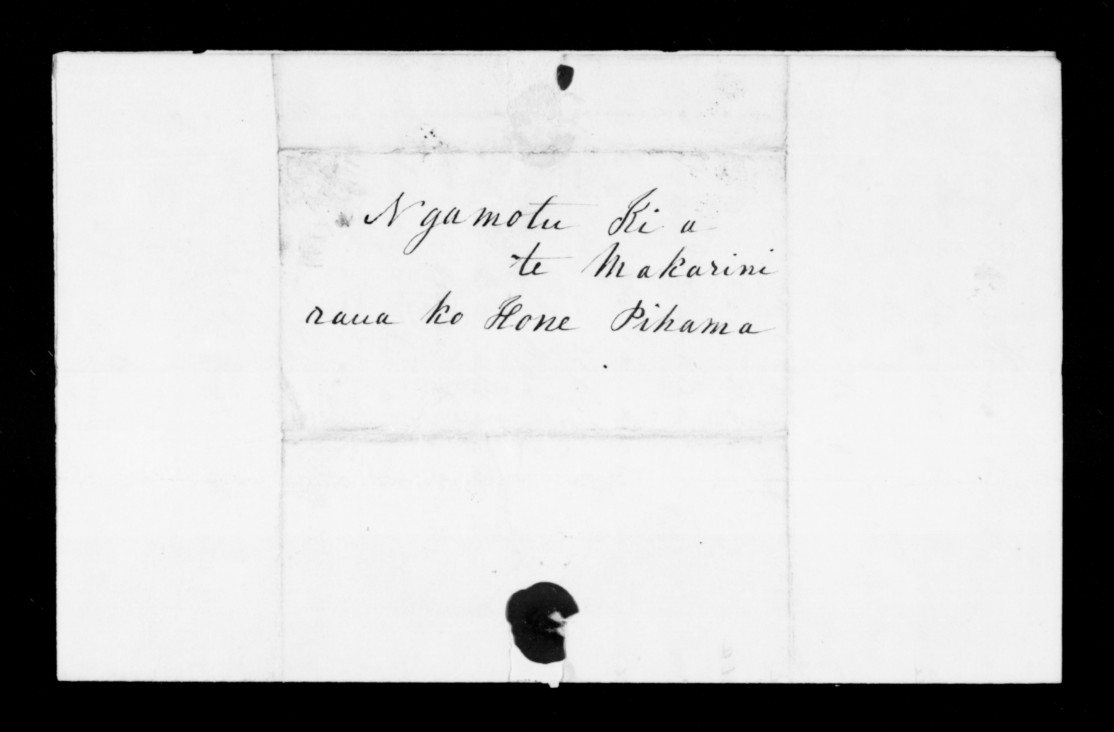 Ngamotu Ki a
te Makarini
raua ko Hone Pihama